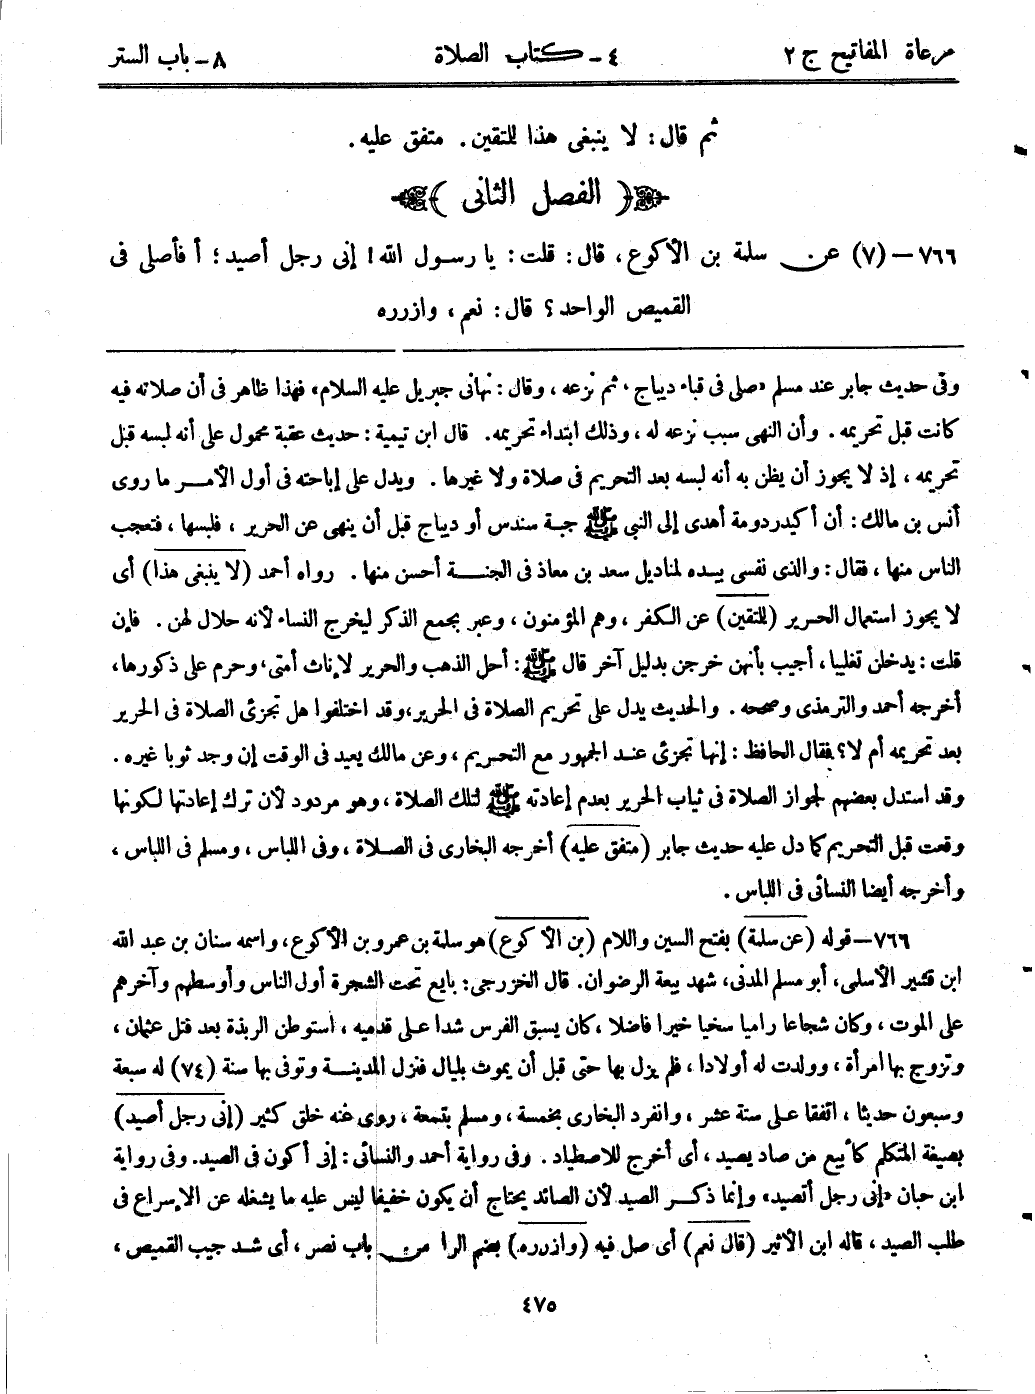 مرعاة المفاتيح ج ٢
٤ - كتاب الصلاة
٨ - باب الستر
ثم قال: لا ينبغى هذا للتقين. متفق عليه.
﴿ الفصل الثانى ﴾
٧٦٦ – (٧) عن سلمة بن الأكوع، قال: قلت: يا رسول الله! إنى رجل أصيد؛ أ فأصلى فى
القميص الواحد؟ قال: نعم، وازرره
وفى حديث جابر عند مسلم «صلى فى قباء ديباج، ثم نزعه، وقال: نهانى جبريل عليه السلام» فهذا ظاهر فى أن صلاته فيه
كانت قبل تحريمه. وأن النهى سبب نزعه له، وذلك ابتداء تحريمه. قال ابن تيمية: حديث عقبة محمول على أنه لبسه قبل
تحريمه، إذ لا يجوز أن يظن به أنه لبسه بعد التحريم فى صلاة ولا غيرها. ويدل على إباحته فى أول الأمر ما روى
أنس بن مالك: أن أكيدردومة أهدى إلى النبى ﷺ جبة سندس أو ديباج قبل أن ينهى عن الحرير، فلبسها، فتعجب
الناس منها، فقال: والذى نفسى بيده لمناديل سعد بن معاذ فى الجنة أحسن منها. رواه أحمد (لا ينبغى هذا) أى
لا يجوز استعمال الحرير (للتقين) عن الكفر، وهم المؤمنون، وعبر بجمع الذكر ليخرج النساء لأنه حلال لهن. فإن
قلت: يدخلن تغليبا، أجيب بأنهن خرجن بدليل آخر قال ﷺ: أحل الذهب والحرير لإناث أمتى، وحرم على ذكورها،
أخرجه أحمد والترمذى وصححه. والحديث يدل على تحريم الصلاة فى الحرير، وقد اختلفوا هل تجزئ الصلاة فى الحرير
بعد تحريمه أم لا؟ فقال الحافظ: إنها تجزئ عند الجمهور مع التحريم، وعن مالك يعيد فى الوقت إن وجد ثوبا غيره.
وقد استدل بعضهم لجواز الصلاة فى ثياب الحرير بعدم إعادته ﷺ لتلك الصلاة، وهو مردود لأن ترك إعادتها لكونها
وقعت قبل التحريم كما دل عليه حديث جابر (متفق عليه) أخرجه البخارى فى الصلاة، وفى اللباس، ومسلم فى اللباس،
وأخرجه أيضا النسائى فى اللباس.
٧٦٦ – قوله (عن سلمة) بفتح السين واللام (بن الأكوع) هو سلمة بن عمرو بن الأكوع، واسمه سنان بن عبد الله
ابن قشير الأسلمى، أبو مسلم المدنى، شهد بيعة الرضوان. قال الخزرجى: بايع تحت الشجرة أول الناس وأوسطهم وآخرهم
على الموت، وكان شجاعا راميا سخيا خيرا فاضلا، كان يسبق الفرس شدا على قدميه، استوطن الربذة بعد قتل عثمان،
وتزوج بها امرأة، وولدت له أولادا، فلم يزل بها حتى قبل أن يموت بليال فنزل المدينة وتوفى بها سنة (٧٤) له سبعة
وسبعون حديثا، اتفقا على ستة عشر، وانفرد البخارى بخمسة، ومسلم بتمعة، روى عنه خلق كثير (إنى رجل أصيد)
بصيغة المتكلم كأبيع من صاد يصيد، أى أخرج للاصطياد. وفى رواية أحمد والنسائى: إنى أكون فى الصيد. وفى رواية
ابن حبان «إنى رجل أتصيد» وإنما ذكر الصيد لأن الصائد يحتاج أن يكون خفيفا ليس عليه ما يشغله عن الإسراع فى
طلب الصيد، قاله ابن الأثير (قال نعم) أى صل فيه (وازرره) بضم الرا من باب نصر، أى شد جيب القميص،
٤٧٥